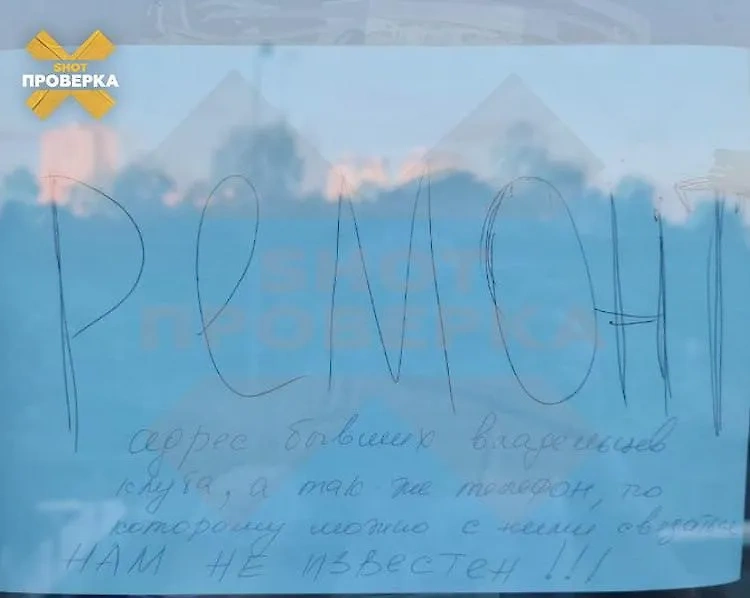 SHOT
ПРОВЕРКА
РеМОНТ
SHOT
ПРОВЕРКА
адрес бывших владельцев
клуба, а так же телефон, по
которому можно с ними связаться
НАМ НЕ ИЗВЕСТЕН!!!